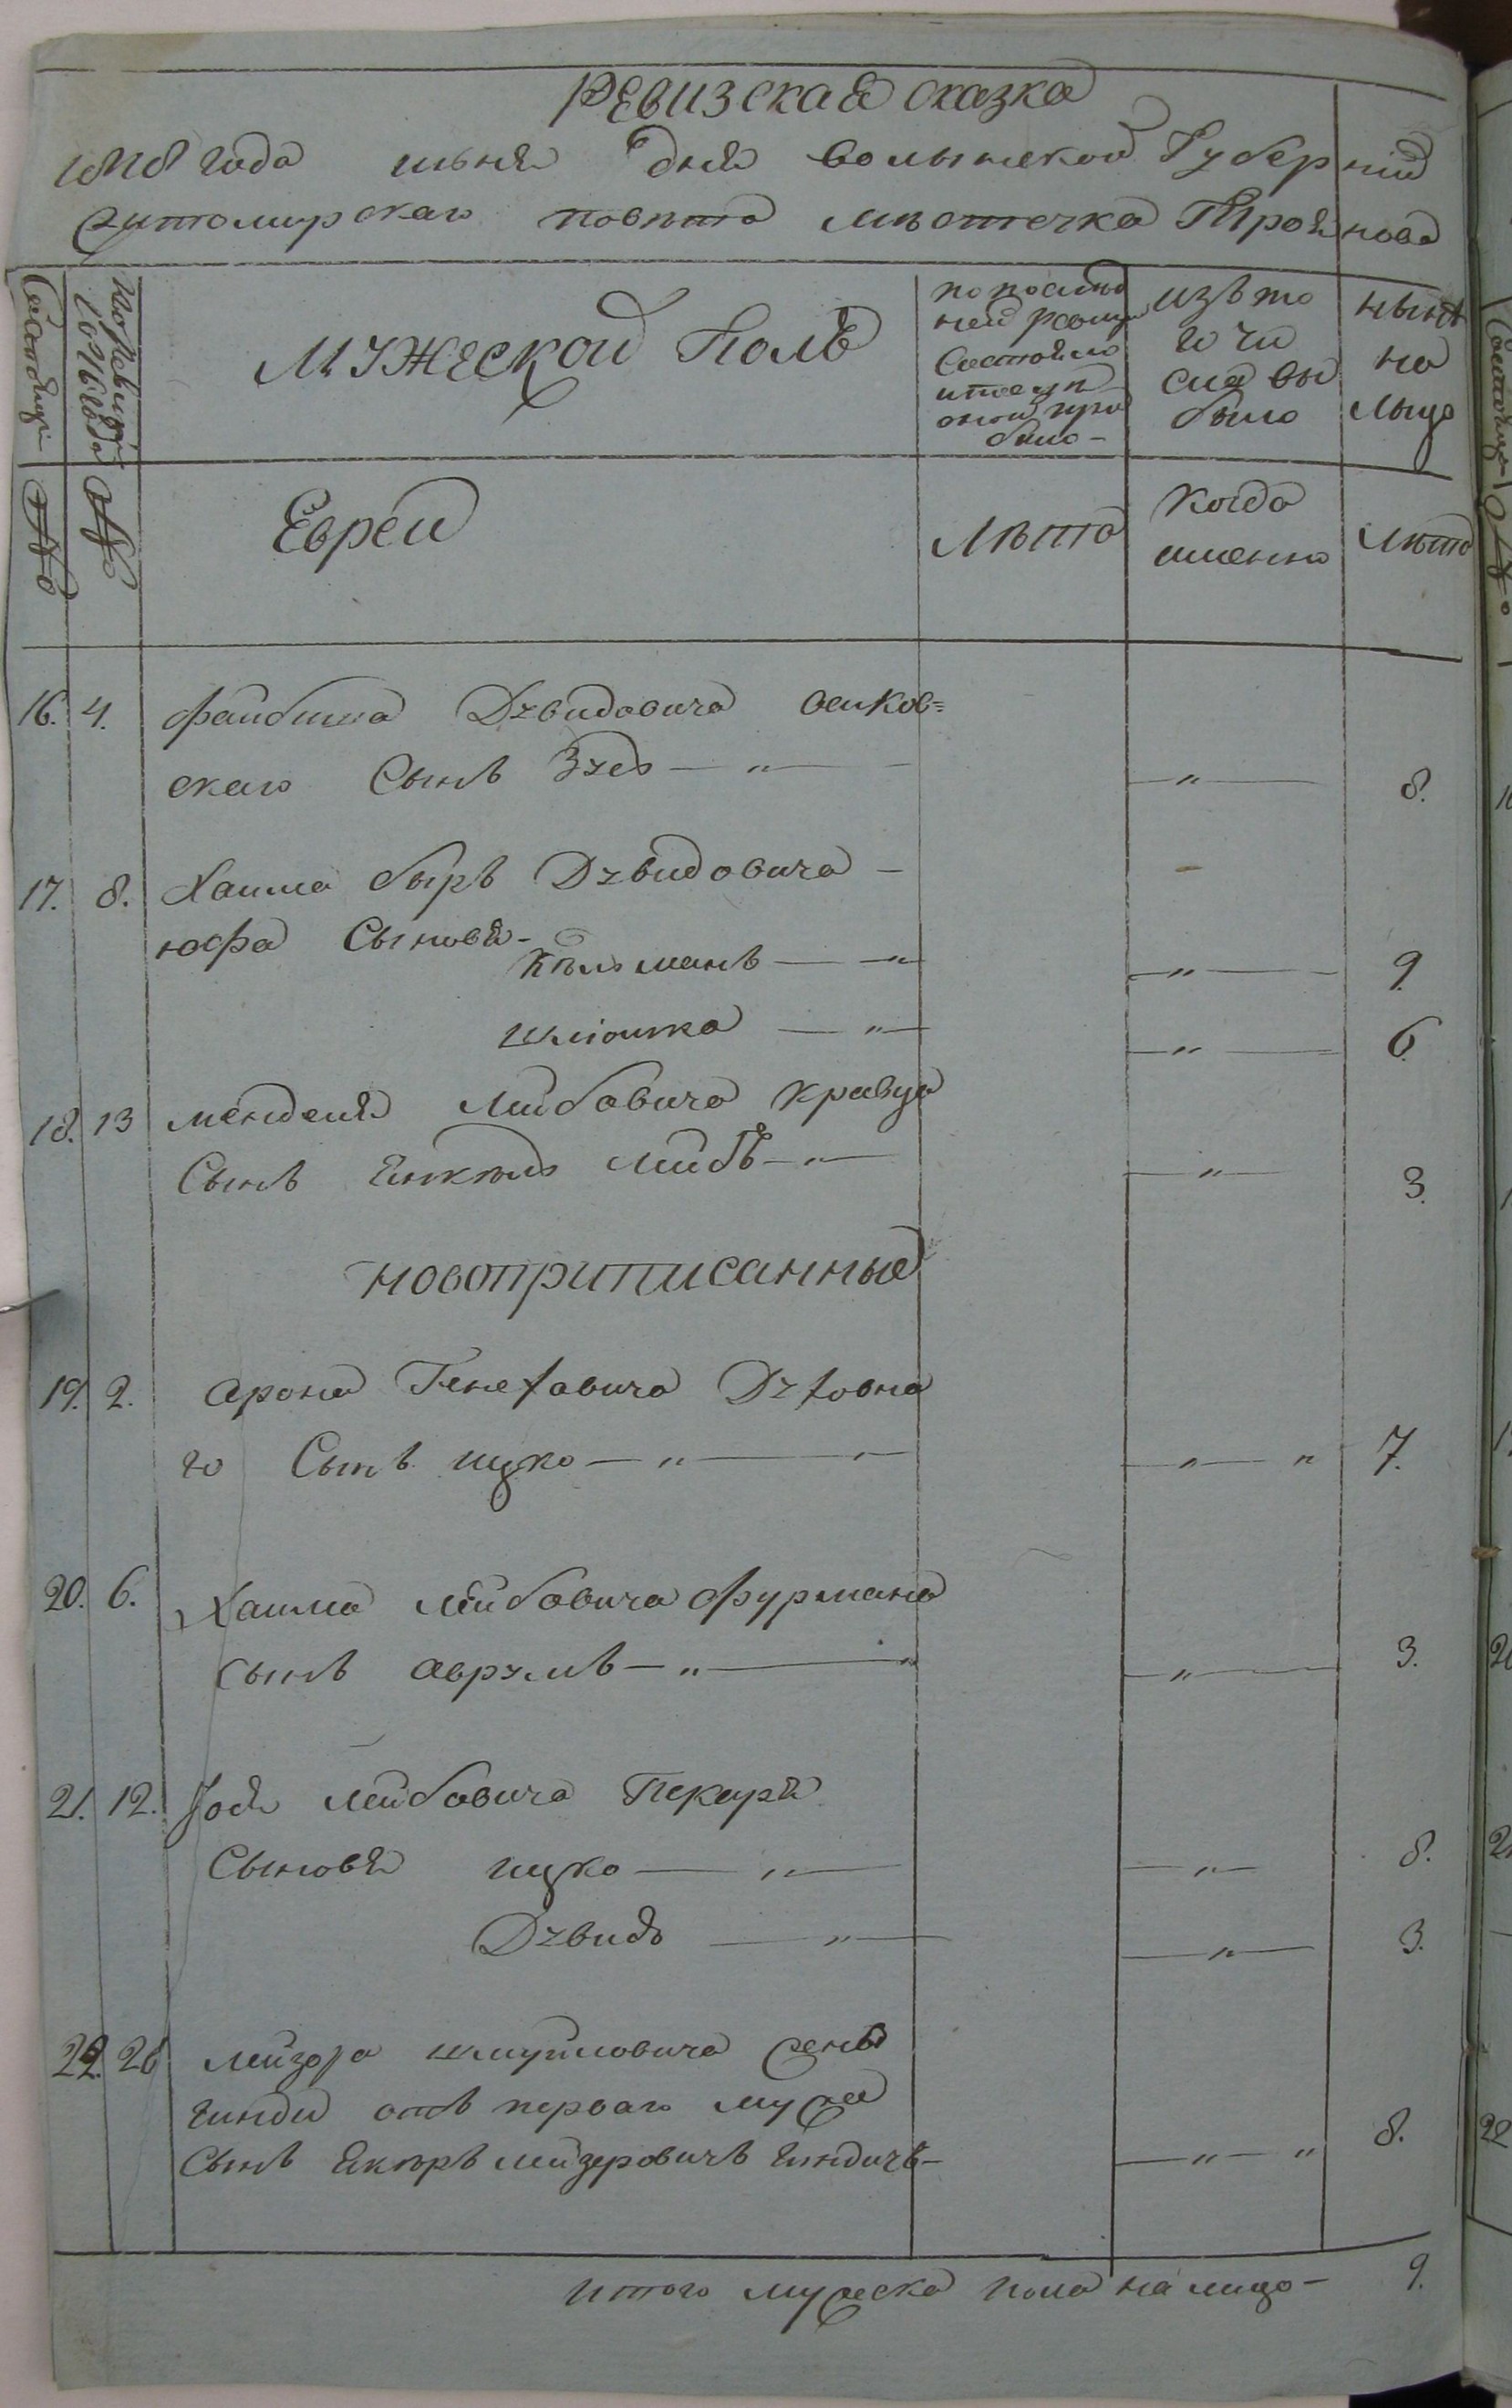 Ревизская сказка
1818 года июня дня волынской Губерніи
Житомирскаго повѣта мѣстечка Троянова
Состоящій
по Ревизіи 1816 года
Мужеской Полъ
по послѣд
ней ревизіи
Состояло
и после
оной при
было -
изъ то
го чи
сла вы
было
нынѣ
на
лицо
№
№
Евреи
Лѣта
когда
именно
Лѣта
16. 4. Файбиша Дувидовича
скаго Сынъ Зусь — " — " — 8.
17. 8. Хаима Бырѣ Дувидовича —
юфа Сыновя -
Кельманъ — " — " — 9.
Шліомка — " — " — 6.
18. 13 Менделя Лейбовича Кравца
Сынъ Янкель Лейбъ — " — " — 3.
Новоприписанные
19. 2. Арона Генеховича Духовна
го Сынъ Ицко — " — " " 7.
20. 6. Хаима Лейбовича Фурмана
Сынъ Аврумъ — " — " — 3.
21. 12. Іося Лейбовича Пекаря
Сыновя Ицко — " — " — 8.
Дувидъ — " — " — 3.
22. 26 Лейзора Шмуйловича жены
Гинди отъ перваго мужа
Сынъ Лейзеровичъ Гиндичъ — " — " 8.
Итого мужеска пола на лицо — 9.